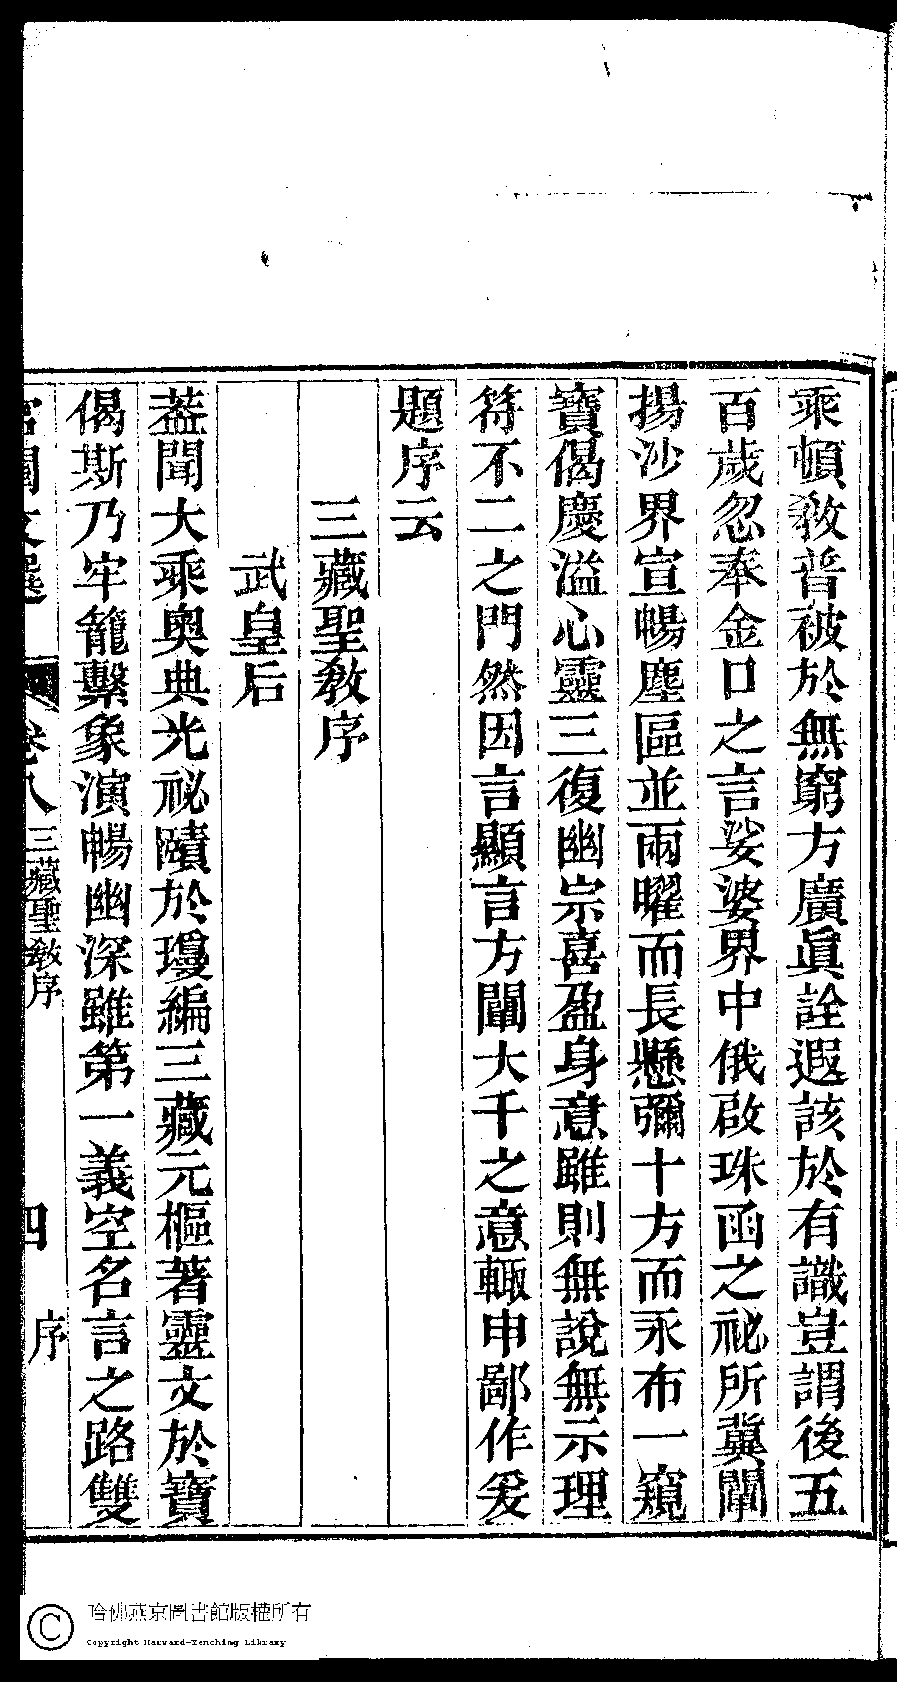 乘頓敎普被於無窮方廣眞詮遐該於有識豈謂後五
百歲忽奉金口之言娑婆界中俄啟珠函之祕所冀闡
揚沙界宣暢塵區並兩曜而長懸彌十方而永布一窺
寶偈慶溢心靈三復幽宗喜盈身意雖則無說無示理
符不二之門然因言顯言方闡大千之意輒申鄙作爰
題序云
三藏聖敎序
武皇后
葢聞大乘奧典光祕賾於瓊編三藏元樞著靈文於寶
偈斯乃牢籠繫象演暢幽深雖第一義空名言之路雙
宮閨文選 卷八 三藏聖敎序 四 序
哈佛燕京圖書館版權所有
Copyright Harvard-Yenching Library